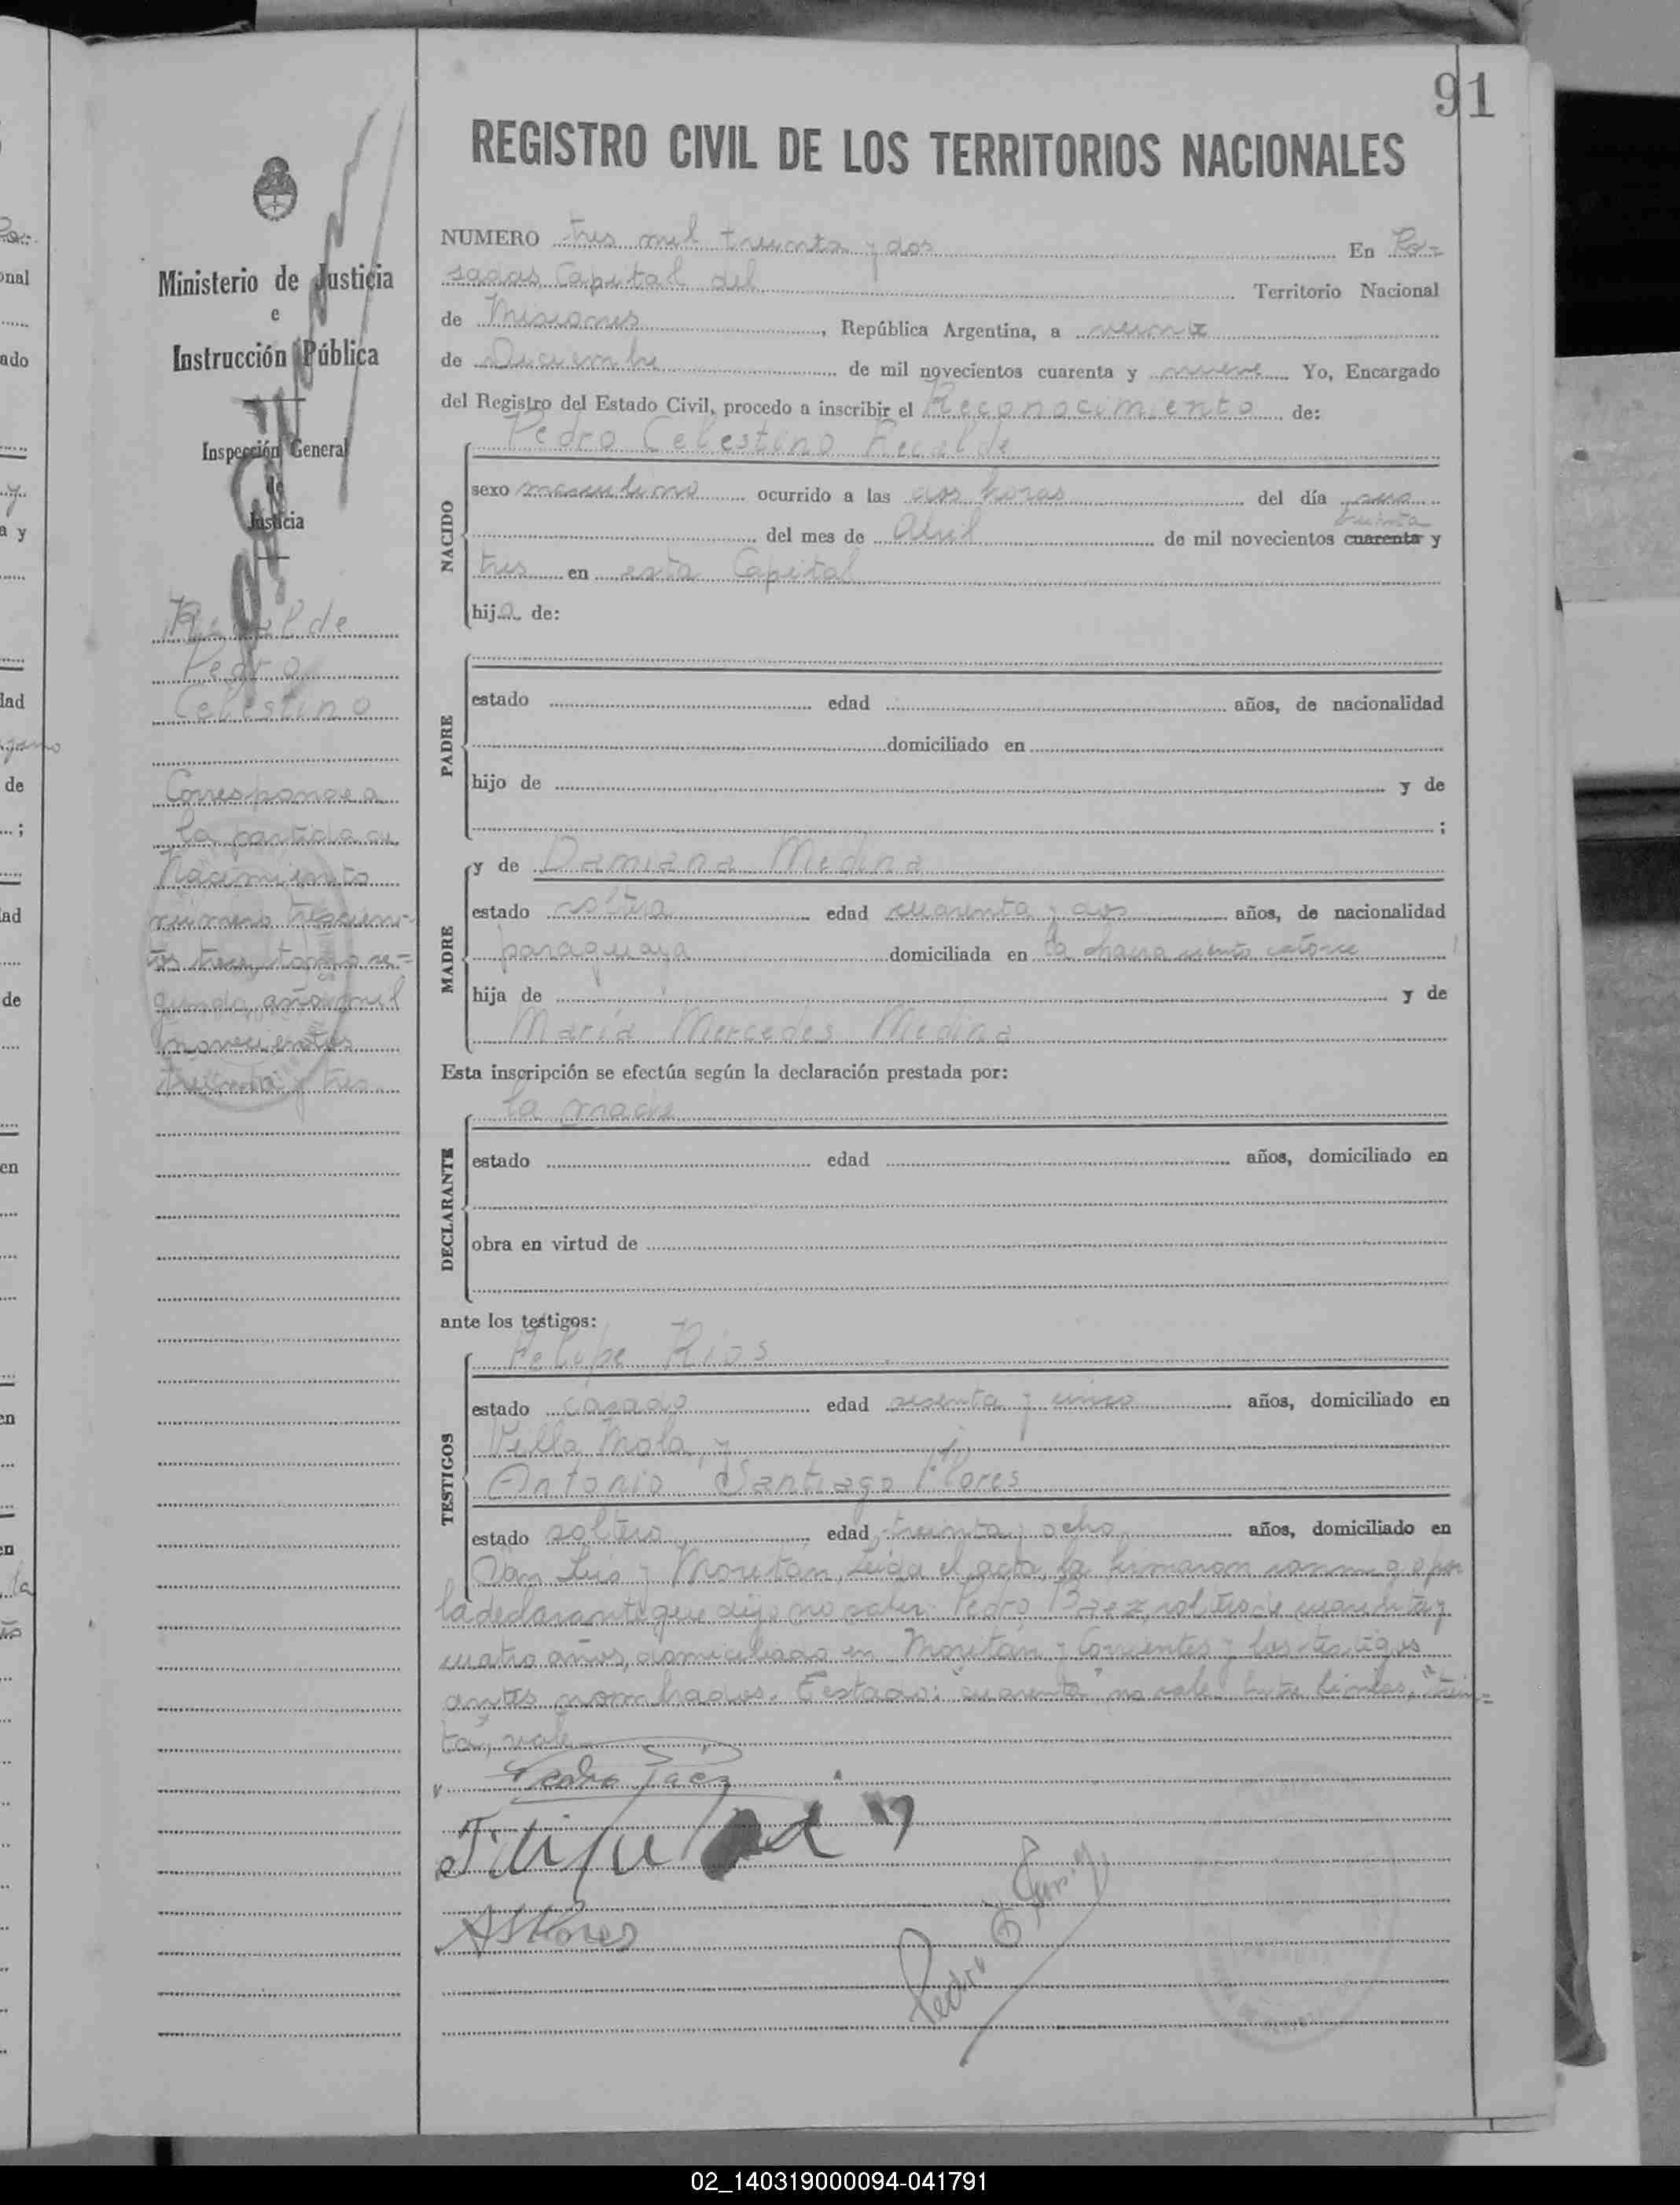 91
REGISTRO CIVIL DE LOS TERRITORIOS NACIONALES
Ministerio de Justicia
e
Instrucción Pública
Inspección General
de
Justicia
Recalde
Pedro
Celestino
Corresponde a
la partida de
Nacimiento
número trescien-
tos trece, tomo se-
gundo, año mil
novecientos
treinta y tres
NUMERO tres mil treinta y dos En Po-
sadas Capital del Territorio Nacional
de Misiones, República Argentina, a
de Diciembre de mil novecientos cuarenta y nueve Yo, Encargado
del Registro del Estado Civil, procedo a inscribir el Reconocimiento de:
Pedro Celestino Recalde
NACIDO
sexo masculino ocurrido a las dos horas del día seis
treinta
del mes de Abril de mil novecientos cuarenta y
tres en esta Capital
hijo de:
PADRE
estado edad años, de nacionalidad
domiciliado en
hijo de y de
;
MADRE
y de Damiana Medina
estado soltera edad cuarenta y dos años, de nacionalidad
paraguaya domiciliada en la chacra ciento catorce
hija de y de
María Mercedes Medina
Esta inscripción se efectúa según la declaración prestada por:
la madre
DECLARANTE
estado edad años, domiciliado en
obra en virtud de
ante los testigos:
TESTIGOS
Felipe Rios
estado casado edad sesenta y cinco años, domiciliado en
Villa Mola, y
Antonio Santiago Flores
estado soltero edad treinta y ocho años, domiciliado en
San Luis y Moritán, Leída el acta, la firmaron conmigo por
la declarante que dijo no saber: Pedro Baez soltero de cuarenta y
cuatro años, domiciliado en Moritán y Corrientes y los testigos
antes nombrados. Testado: "cuarenta" no vale. Entre lineas: "trein-
ta", vale
Pedro Baez
A S Flores
Pedro
02_140319000094-041791